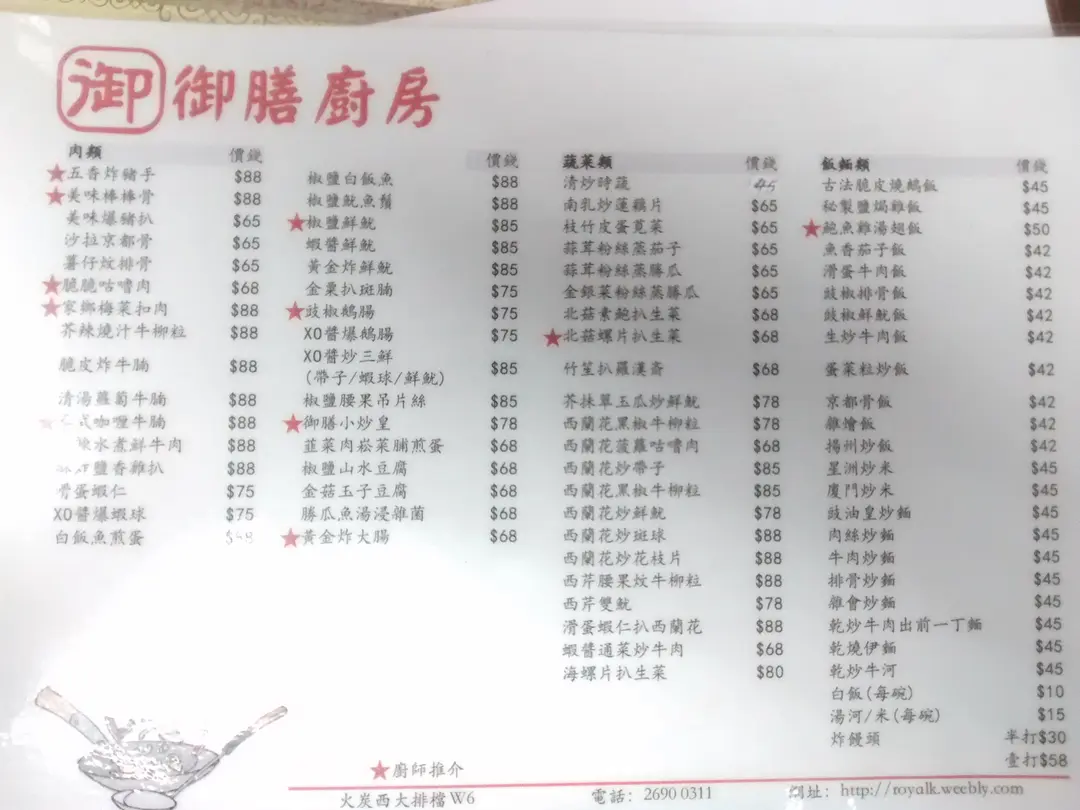 御 御膳廚房
肉類 價錢
★五香炸豬手 $88
★美味棒棒骨 $88
美味爆豬扒 $65
沙拉京都骨 $65
薯仔炆排骨 $65
★脆脆咕嚕肉 $68
★家鄉梅菜扣肉 $88
芥辣燒汁牛柳粒 $88
脆皮炸牛腩 $88
清湯蘿蔔牛腩 $88
式咖喱牛腩 $88
水煮鮮牛肉 $88
鹽香雞扒 $88
滑蛋蝦仁 $75
XO醬爆蝦球 $75
白飯魚煎蛋
價錢
椒鹽白飯魚 $88
椒鹽魷魚鬚 $88
★椒鹽鮮魷 $85
蝦醬鮮魷 $85
黃金炸鮮魷 $85
金粟扒斑腩 $75
★豉椒鵝腸 $75
XO醬爆鵝腸 $75
XO醬炒三鮮
(帶子/蝦球/鮮魷) $85
椒鹽腰果吊片絲 $85
★御膳小炒皇 $78
韮菜肉崧菜脯煎蛋 $68
椒鹽山水豆腐 $68
金菇玉子豆腐 $68
勝瓜魚湯浸雜菌 $68
★黃金炸大腸 $68
蔬菜類 價錢
清炒時蔬 45
南乳炒蓮藕片 $65
枝竹皮蛋莧菜 $65
蒜茸粉絲蒸茄子 $65
蒜茸粉絲蒸勝瓜 $65
金銀菜粉絲蒸勝瓜 $65
北菇素鮑扒生菜 $68
★北菇螺片扒生菜 $68
竹笙扒羅漢齋 $68
芥抹翠玉瓜炒鮮魷 $78
西蘭花黑椒牛柳粒 $78
西蘭花菠蘿咕嚕肉 $68
西蘭花炒帶子 $85
西蘭花黑椒牛柳粒 $85
西蘭花炒鮮魷 $68
西蘭花炒斑球 $88
西蘭花炒花枝片 $88
西芹腰果炆牛柳粒 $88
西芹雙魷 $78
滑蛋蝦仁扒西蘭花 $88
蝦醬通菜炒牛肉 $68
海螺片扒生菜 $80
飯麵類 價錢
古法脆皮燒鵝飯 $45
秘製鹽焗雞飯 $45
★鮑魚雞湯翅飯 $50
魚香茄子飯 $42
滑蛋牛肉飯 $42
豉椒排骨飯 $42
豉椒鮮魷飯 $42
生炒牛肉飯 $42
蛋菜粒炒飯 $42
京都骨飯 $42
雜燴飯 $42
揚州炒飯 $42
星洲炒米 $45
廈門炒米 $45
豉油皇炒麵 $45
肉絲炒麵 $45
牛肉炒麵 $45
排骨炒麵 $45
雜會炒麵 $45
乾炒牛肉出前一丁麵 $45
乾燒伊麵 $45
乾炒牛河 $45
白飯(每碗) $10
湯河/米(每碗) $15
炸饅頭 半打$30
壹打$58
★廚師推介
火炭西大排檔W6 電話: 2690 0311 網址: http://royalk.weebly.com